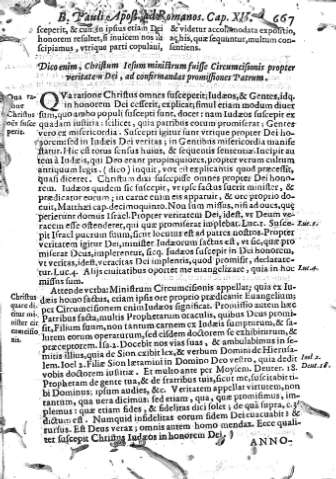 B. Pauli Apost. ad Romanos. Cap. XIV. 667
sceperit, & cùm in ipsius etiam Dei & videtur accommodata expositio,
honorem resultet, si inuicem nos ita ac his, quæ sequuntur, multum con-
scipiamus, vtrique parti copulani, sentiens.
Dico enim, Christum Iesum ministrum fuisse Circumcisionis propter
veritatem Dei, ad confirmandas promissiones Patrum.
QVa ratione Christus omnes susceperit; Iudæos, & Gentes, idq.
in honorem Dei cesserit, explicat; simul etiam modum diuer
sum, quo ambo populi suscepti sunt, docet: nam Iudæos suscepit ex
quadam iustitia: scilicet, quia patribus eorum promiserat: Gentes
vero ex misericordia. Suscepti igitur sunt vtrique propter Dei ho-
norem: sed in Iudæis Dei veritas; in Gentibus misericordia manife
statur. Hic est totus sensus huius, & sequentis sententiæ. Incipit au
tem à Iudæis, qui Deo erant propinquiores, propter verum cultum
antiquum legis. (dico) inquit, vox est explicantis quod præcessit,
quasi diceret. Christum duas suscepisse omnes propter Dei hono-
rem. Iudæos quidem sic suscepit, vt ipse factus fuerit minister, &
prædicator eorum; in carne enim eis apparuit, & ore proprio do-
cuit, Matthæi cap. decimoquinto. Non sum missus, nisi ad oues, quę
perierunt domus Israel. Propter veritatem Dei, idest, vt Deum ve-
racem esse ostenderet, qui quæ promiserat implebat. Luc. 2. Susce-
pit Israel puerum suum, sicut locutus est ad patres nostros. Propter
veritatem igitur Dei, minister Iudæorum factus est, vt sic, quæ pro
miserat Deus, implerentur, sicq. Iudæos suscepit in Dei honorem,
vt veritas, idest, veracitas Dei implentis, quod promisit, declarare-
tur. Luc. 4. Aliis ciuitatibus oportet me euangelizare, quia in hoc
missus sum.
Attende verba: Ministrum Circumcisionis appellat; quia ex Iu-
dæis homo factus, etiam ipsis ore proprio prædicauit Euangelium;
per Circumcisionem enim Iudæos significat. Promissio autem hæc
Patribus facta, multis Prophetarum oraculis, quibus Deus promi-
sit, Filium suum, non tantum carnem ex Iudæis sumpturum, & sa-
lutem eorum operaturum, sed eisdem doctorem se exhibiturum, &
præceptorem. Isa. 2. Docebit nos vias suas, & ambulabimus in se-
mitis illius, quia de Sion exibit lex, & verbum Domini de Hierusa-
lem. Ioel 2. Filiæ Sion lætamini in Domino Deo vestro, quia dedit
vobis doctorem iustitiæ. Et multo ante per Moysem. Deuter. 18.
Prophetam de gente tua, & de fratribus tuis, sicut me, suscitabit ti-
bi Dominus; ipsum audies, &c. Veritatem appellat virtutem, non
tantum, qua vera dicimus: sed etiam, qua, quæ promisimus, im-
plemus: quæ etiam fides, & fidelitas dici solet; de qua supra, c. 3.
dictum est. Numquid infidelitas eorum fidem Dei euacuabit? &
rursus. Est Deus verax; omnis autem homo mendax. Ecce quali-
ter suscepit Christus Iudæos in honorem Dei.
ANNO-
Qua ra-
tione
Christus
Christus
quare di
citur mi-
nister cir
cumcisio
nis.
Luc. 2.
Luc. 4.
Ioel 2.
Deut. 18.